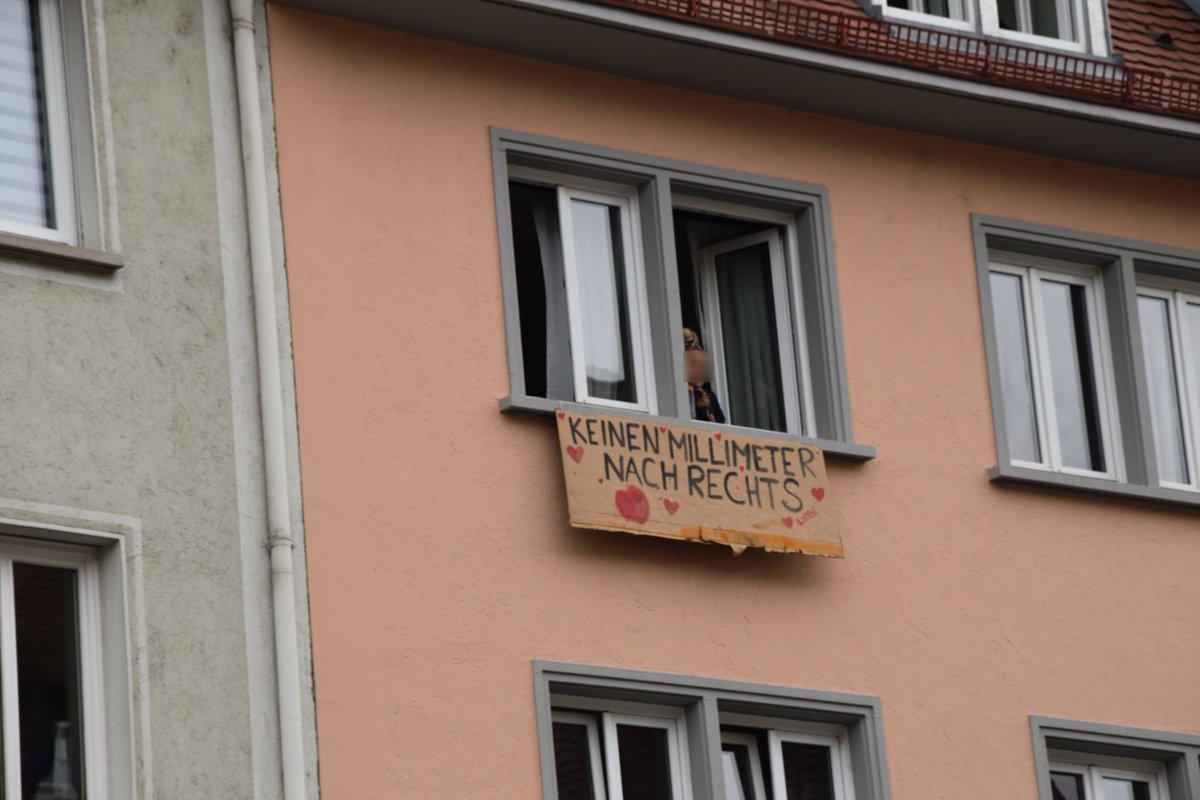 KEINEN MILLIMETER
NACH RECHTS
LIEBE